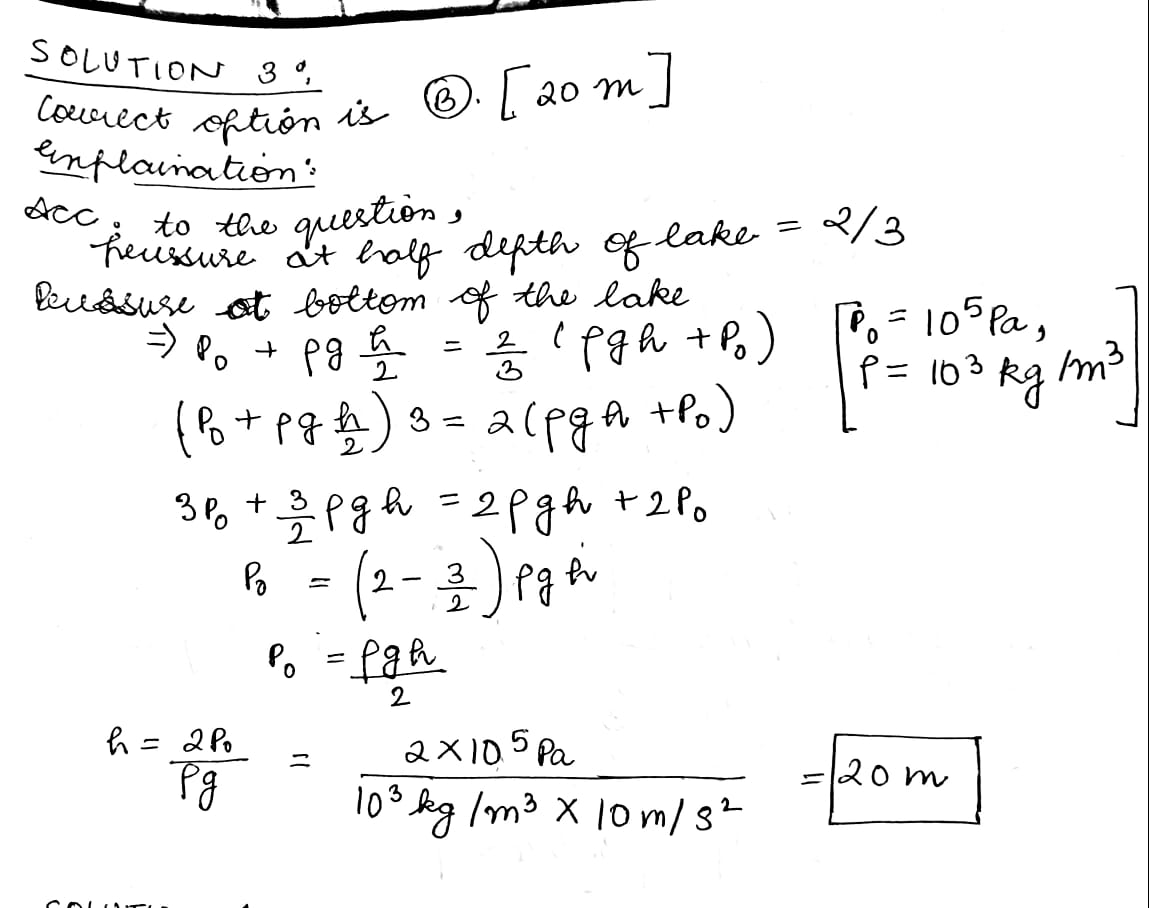 SOLUTION 3:
Correct option is (B). [20 m]
Explaination:
Acc. to the question,
pressure at half depth of lake = 2/3
Pressure at bottom of the lake
⇒ P₀ + ρg h/2 = 2/3 (ρgh + P₀) [P₀ = 10⁵ Pa, ρ = 10³ kg/m³]
(P₀ + ρg h/2) 3 = 2(ρgh + P₀)
3P₀ + 3/2 ρgh = 2ρgh + 2P₀
P₀ = (2 - 3/2) ρgh
P₀ = ρgh/2
h = 2P₀/ρg = 2×10⁵ Pa / 10³ kg/m³ × 10 m/s² = 20 m